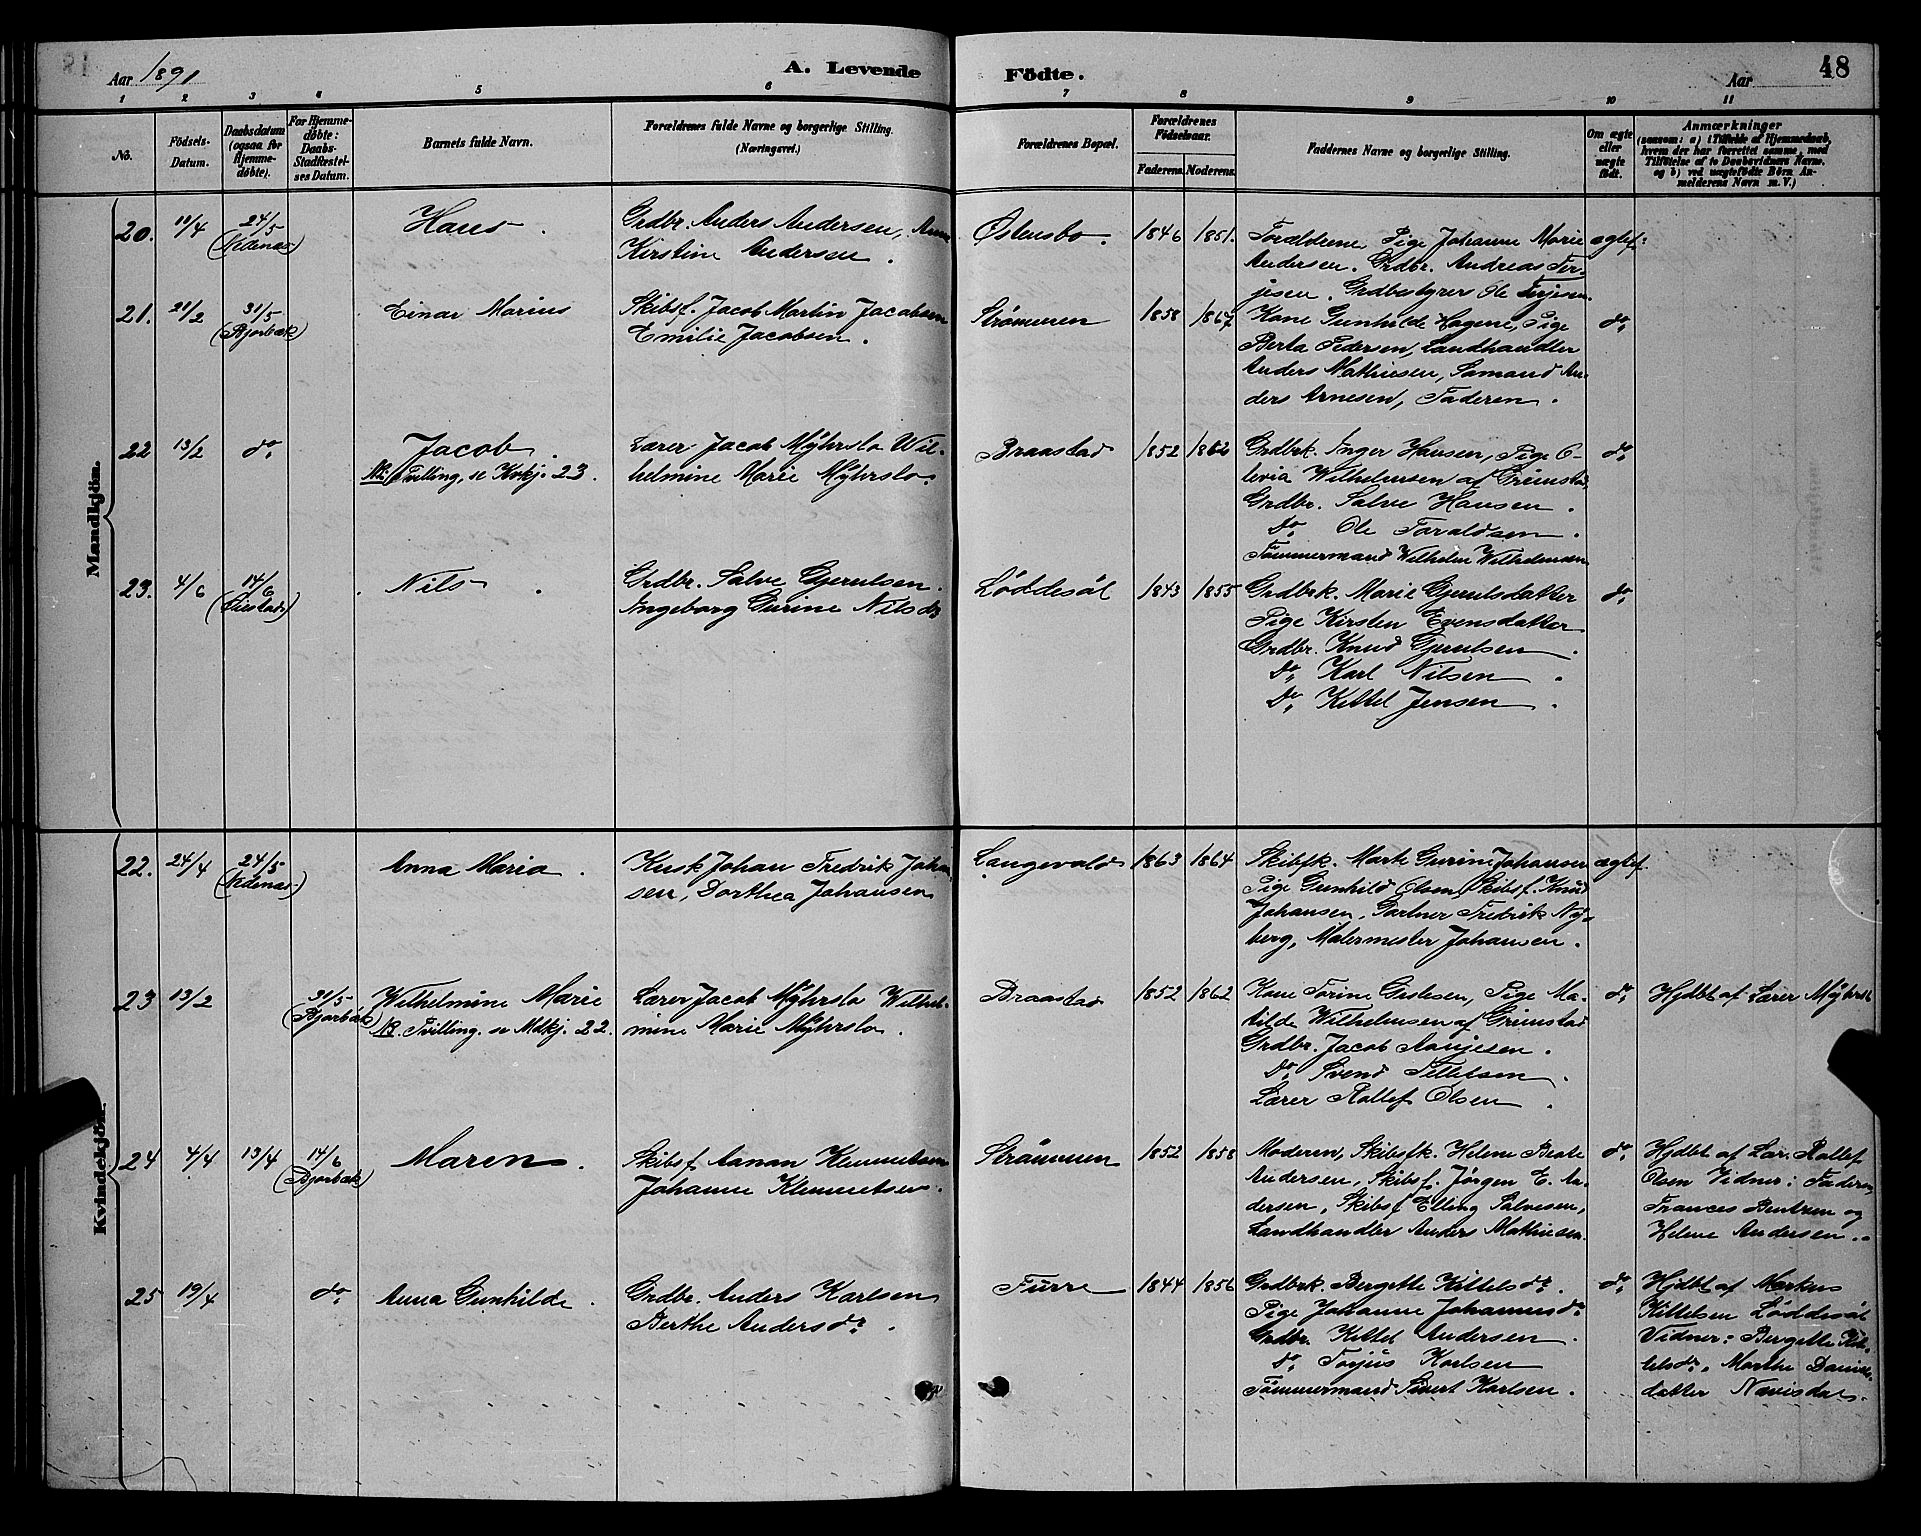 Aar 1891
A. Levende
Födte.
Aar
48
1 2 3 4 5 6 7 8 9 10 11
No.
Födsels-
Datum.
Daabsdatum
(ogsaa for
Hjemme-
döbte).
For Hjemme-
döbte:
Daabs-
Stadfæstel-
ses Datum.
Barnets fulde Navn.
Forældrenes fulde Navne og borgerlige Stilling.
(Næringsvei.)
Forældrenes Bopæl.
Forældrenes
Födselsaar.
Faderens.
Moderens.
Faddernes Navne og borgerlige Stilling.
Om ægte
eller
uægte
födt.
Anmærkninger
(saasom: a) i Tilfælde af Hjemmedaab,
hvem der har forrettet samme, med
Tilföielse af to Daabsvidners Navne,
og b) ved uægtefödte Börn An-
melderens Navn m. V.)
Mandkjön.
20. 11/4 24/5
Hans.
Grdbr. Anders Andersen, Anne
Kirstine Andersen.
Østensbo. 1846 1851.
Forældrene, Pige Johanne Marie
Andersen. Grdbr. Andreas Ter-
jesen, Grdbestyrer Ole Terjesen.
ægtef:
21. 21/2 31/5
(Bjorbæk)
Einar Marius
Skibsf. Jacob Martin Jacobsen
Emilie Jacobsen.
Strømmen 1858 1867
Kone Gunhilde Hagene, Pige
Berta Pedersen, Landhandler
Anders Mathiesen, Sømand An-
ders Arnesen, Faderen.
do.
22 13/2 do.
Jacob.
NB. Tvilling, se Kvkj. 23.
Lærer Jacob Myhrslo Wil-
helmine Marie Myhrslo.
Braastad 1852 1862
Grdbrk. Inger Hansen, Pige O-
levia Wilhelmsen af Grimstad,
Grdbr. Salve Hansen.
Do. Ole Taraldsen.
Tømmermand Wilhelm Wilhelmsen
do.
23. 4/6 14/6
Nils.
Grdbr. Salve Gjerulsen.
Ingeborg Gurine Nilsdr
Løddesøl 1843 1855
Grdbrk. Marie Gjerulsdatter
Pige Kirsten Evensdatter
Grdbr. Knud Gjerulsen.
Do. Karl Nilsen.
Do. Kittel Jensen.
do.
Kvindekjön.
22. 24/4 24/5
Anna Maria.
Kusk Johan Fredrik Johan-
sen, Dorthea Johansen
Langevold 1863 1864
Skibsfk. Marte Gurine Johansen
Pige Gunhild Olsen, Skibsf. Knud
Johansen, Gartner Fredrik Ny-
berg, Malermester Johansen.
ægtef.
23 13/2 31/5
(Bjorbæk)
Wilhelmine Marie
NB. Tvilling. se Mdkj. 22.
Lærer Jacob Myhrslo Wilhel-
mine Marie Myhrslo.
Braastad 1852 1862
Kone Torine Gislesen, Pige Ma-
tilde Wilhelmsen af Grimstad
Grdbr. Jacob Aanjesen.
Do. Svend Tellefsen.
Lærer Rollef Olsen.
do.
Hjdbt af Lærer Myhrslo
24 4/4 13/4 14/6
(Bjorbæk)
Maren.
Skibsf. Aanon Klemmetsen
Johanne Klemmetsen.
Strømmen 1852 1858
Moderen, Skibsfk. Helene Beate
Andersen, Skibsf. Jørgen E. An-
dersen, Skibsf Elling Salvesen,
Landhandler Anders Mathiesen.
do.
Hjdbt af Lær. Rollef
Olsen Vidner: Faderen,
Frances Bentzen og
Helene Andersen.
25 19/4 do.
Anna Gunhilde.
Grdbr. Anders Karlsen
Berthe Andersdr.
Furre 1844 1856
Grdbrk. Bergette Kittelsdr.
Pige Johanne Johannesdr
Grdbr. Kittel Andersen.
do. Torjus Karlsen
Tømmermand Sivert Karlsen.
do.
Hjdbt af Markus
Kittelsen Løddesøl
Vidner: Bergette Kit-
telsdr, Marthe Daniels-
datter